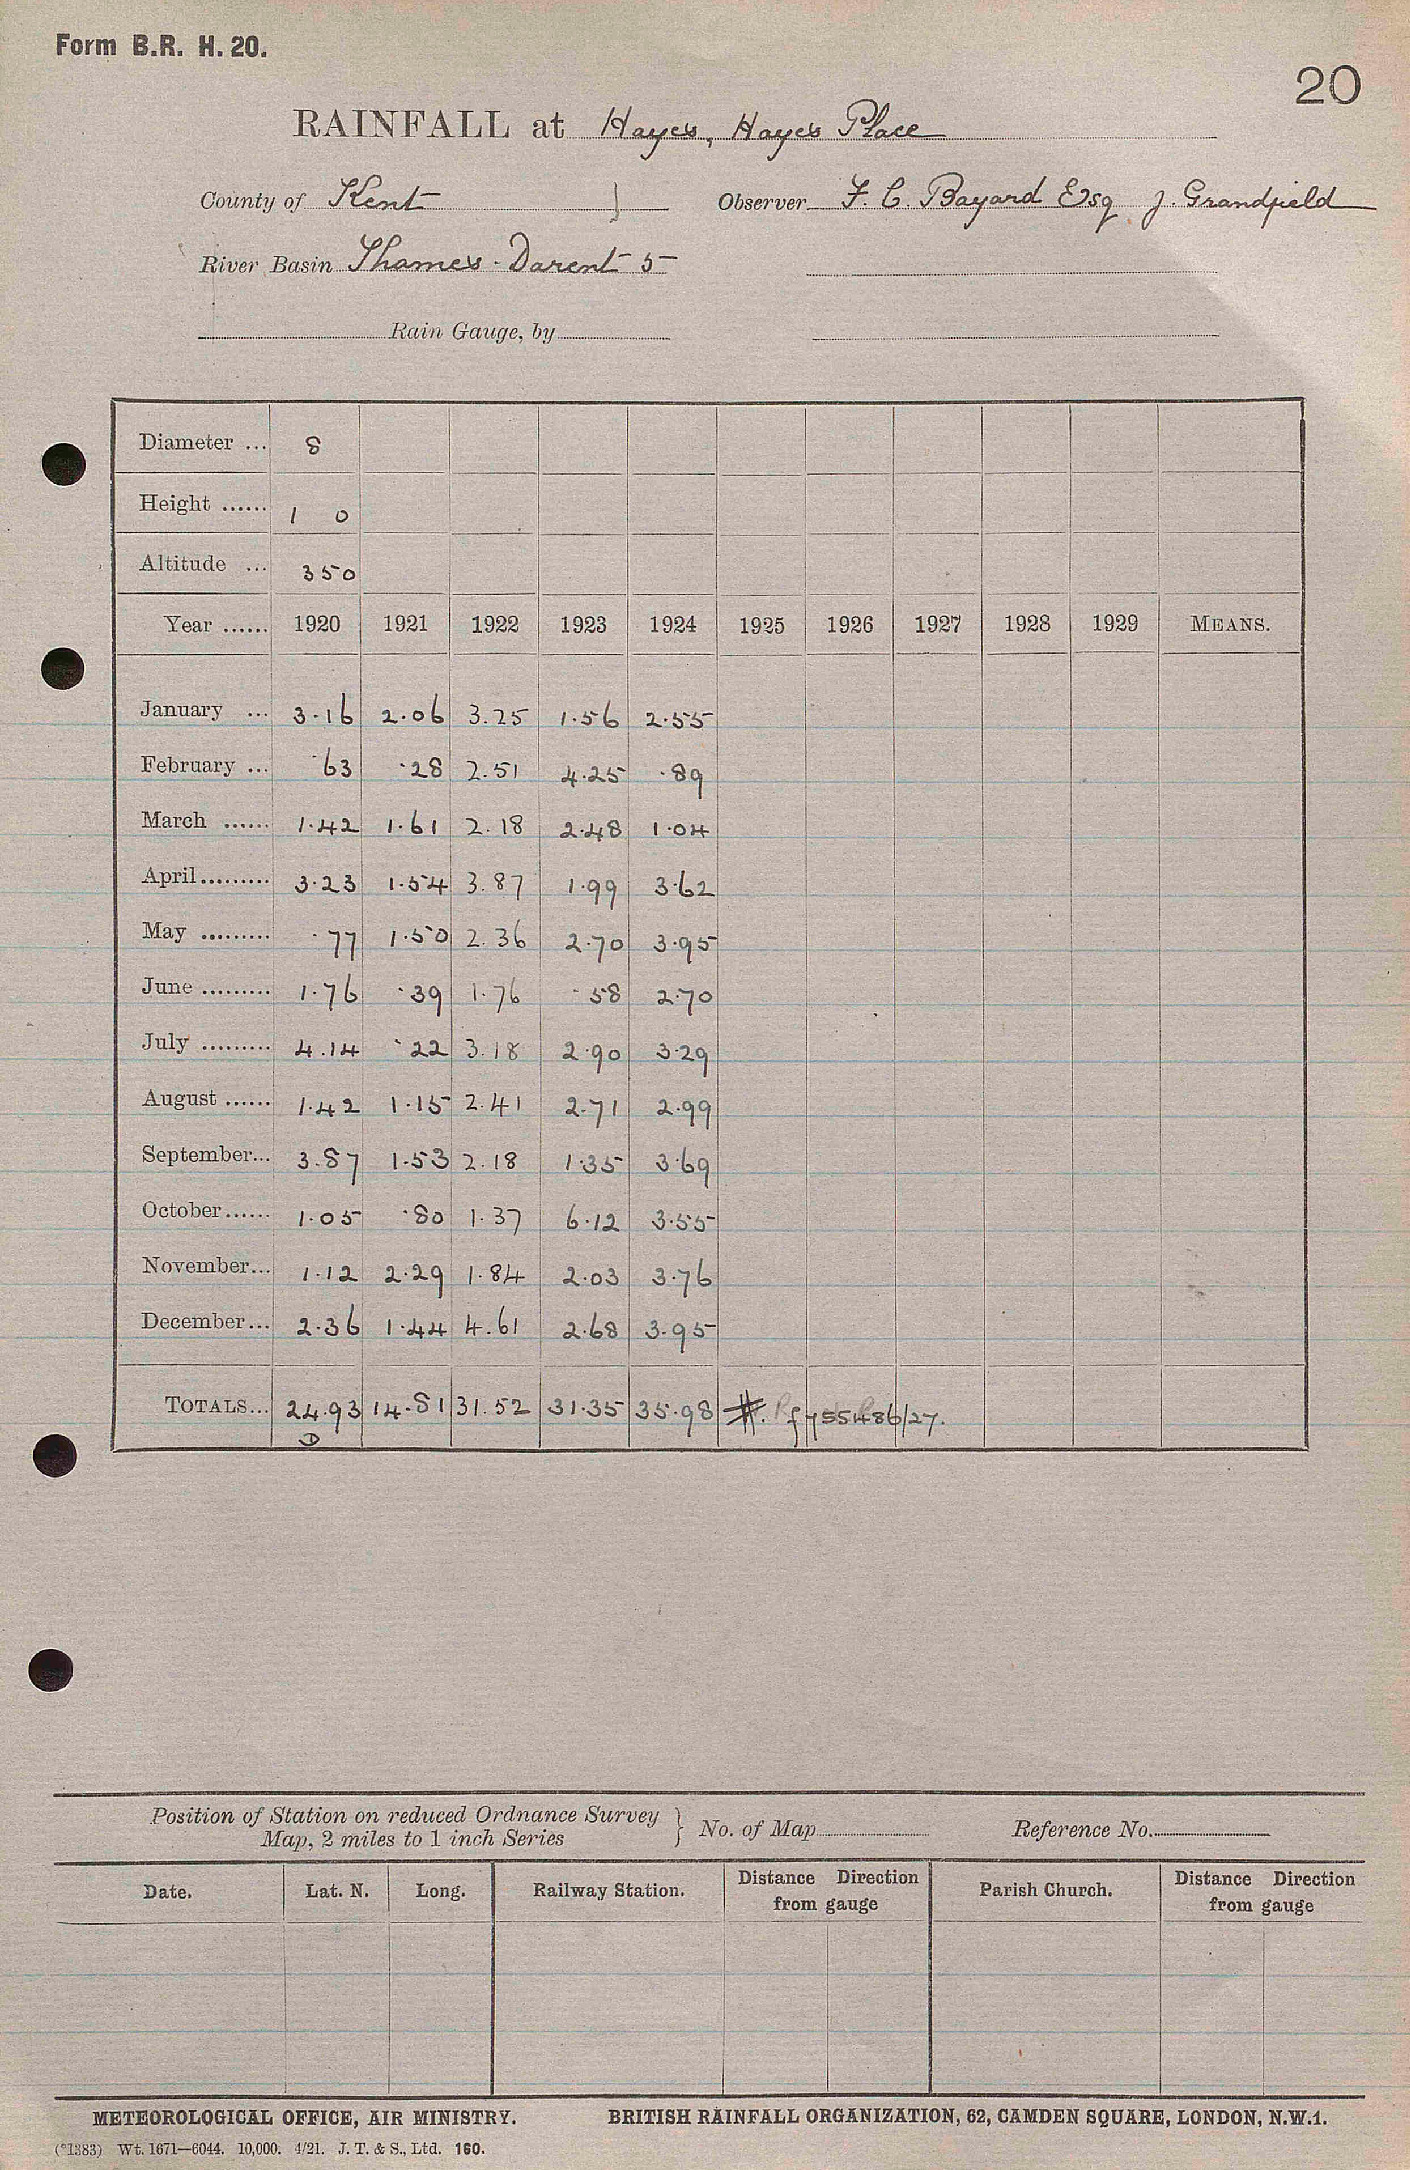 Form B.R. H. 20.
20
RAINFALL at Hayes, Hayes Place
County of Kent Observer F. C. Bayard Esq J. Grandfield
River Basin Thames - Darent 5
Rain Gauge, by
Diameter ... 8
Height ...... 1 0
Altitude ... 350
Year ...... 1920 1921 1922 1923 1924 1925 1926 1927 1928 1929 MEANS.
January ... 3.16 2.06 3.25 1.56 2.55
February ... .63 .28 2.51 4.25 .89
March ...... 1.42 1.61 2.18 2.48 1.04
April......... 3.23 1.54 3.87 1.99 3.62
May ......... .77 1.50 2.36 2.70 3.95
June ......... 1.76 .39 1.76 .58 2.70
July ......... 4.14 .22 3.18 2.90 3.29
August ...... 1.42 1.15 2.41 2.71 2.99
September... 3.87 1.53 2.18 1.35 3.69
October...... 1.05 .80 1.37 6.12 3.55
November... 1.12 2.29 1.84 2.03 3.76
December... 2.36 1.44 4.61 2.68 3.95
TOTALS... 24.93 14.81 31.52 31.35 35.98 #. 755486/27.
D
Position of Station on reduced Ordnance Survey
Map, 2 miles to 1 inch Series } No. of Map Reference No.
Date. Lat. N. Long. Railway Station. Distance Direction from gauge Parish Church. Distance Direction from gauge
METEOROLOGICAL OFFICE, AIR MINISTRY. BRITISH RAINFALL ORGANIZATION, 62, CAMDEN SQUARE, LONDON, N.W.1.
(*1383) Wt. 1671—6044. 10,000. 4/21. J. T. & S., Ltd. 160.